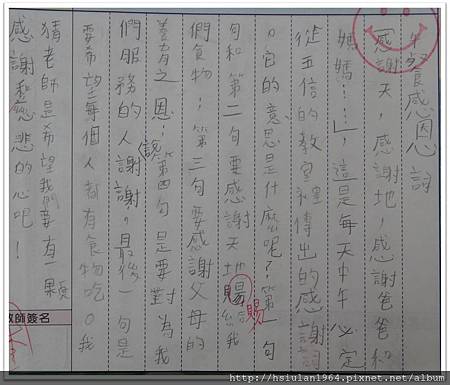 午餐感恩詞
「感謝天,感謝地,感謝爸爸和
媽媽……」,這是每天中午必定
從五信的教室裡傳出的感謝詞
。它的意思是什麼呢?第一句
句和第二句要感謝天地賜給我
賜
們食物;第三句要感謝父母的
養育之恩;第四句是要對為我
該
們服務的人謝謝,最後一句是
要希望每個人都有食物吃。我
猜老師是希望我們要有一顆
感謝慈悲的心吧!
教師簽名
http://hsiulan1964.pixnet.net/album